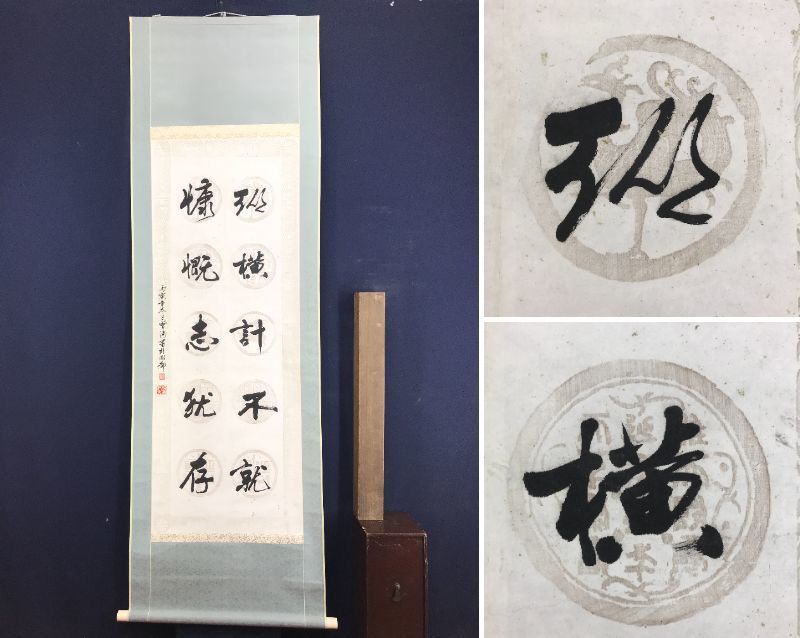 縱橫計不就
慷慨志猶存
縱
橫